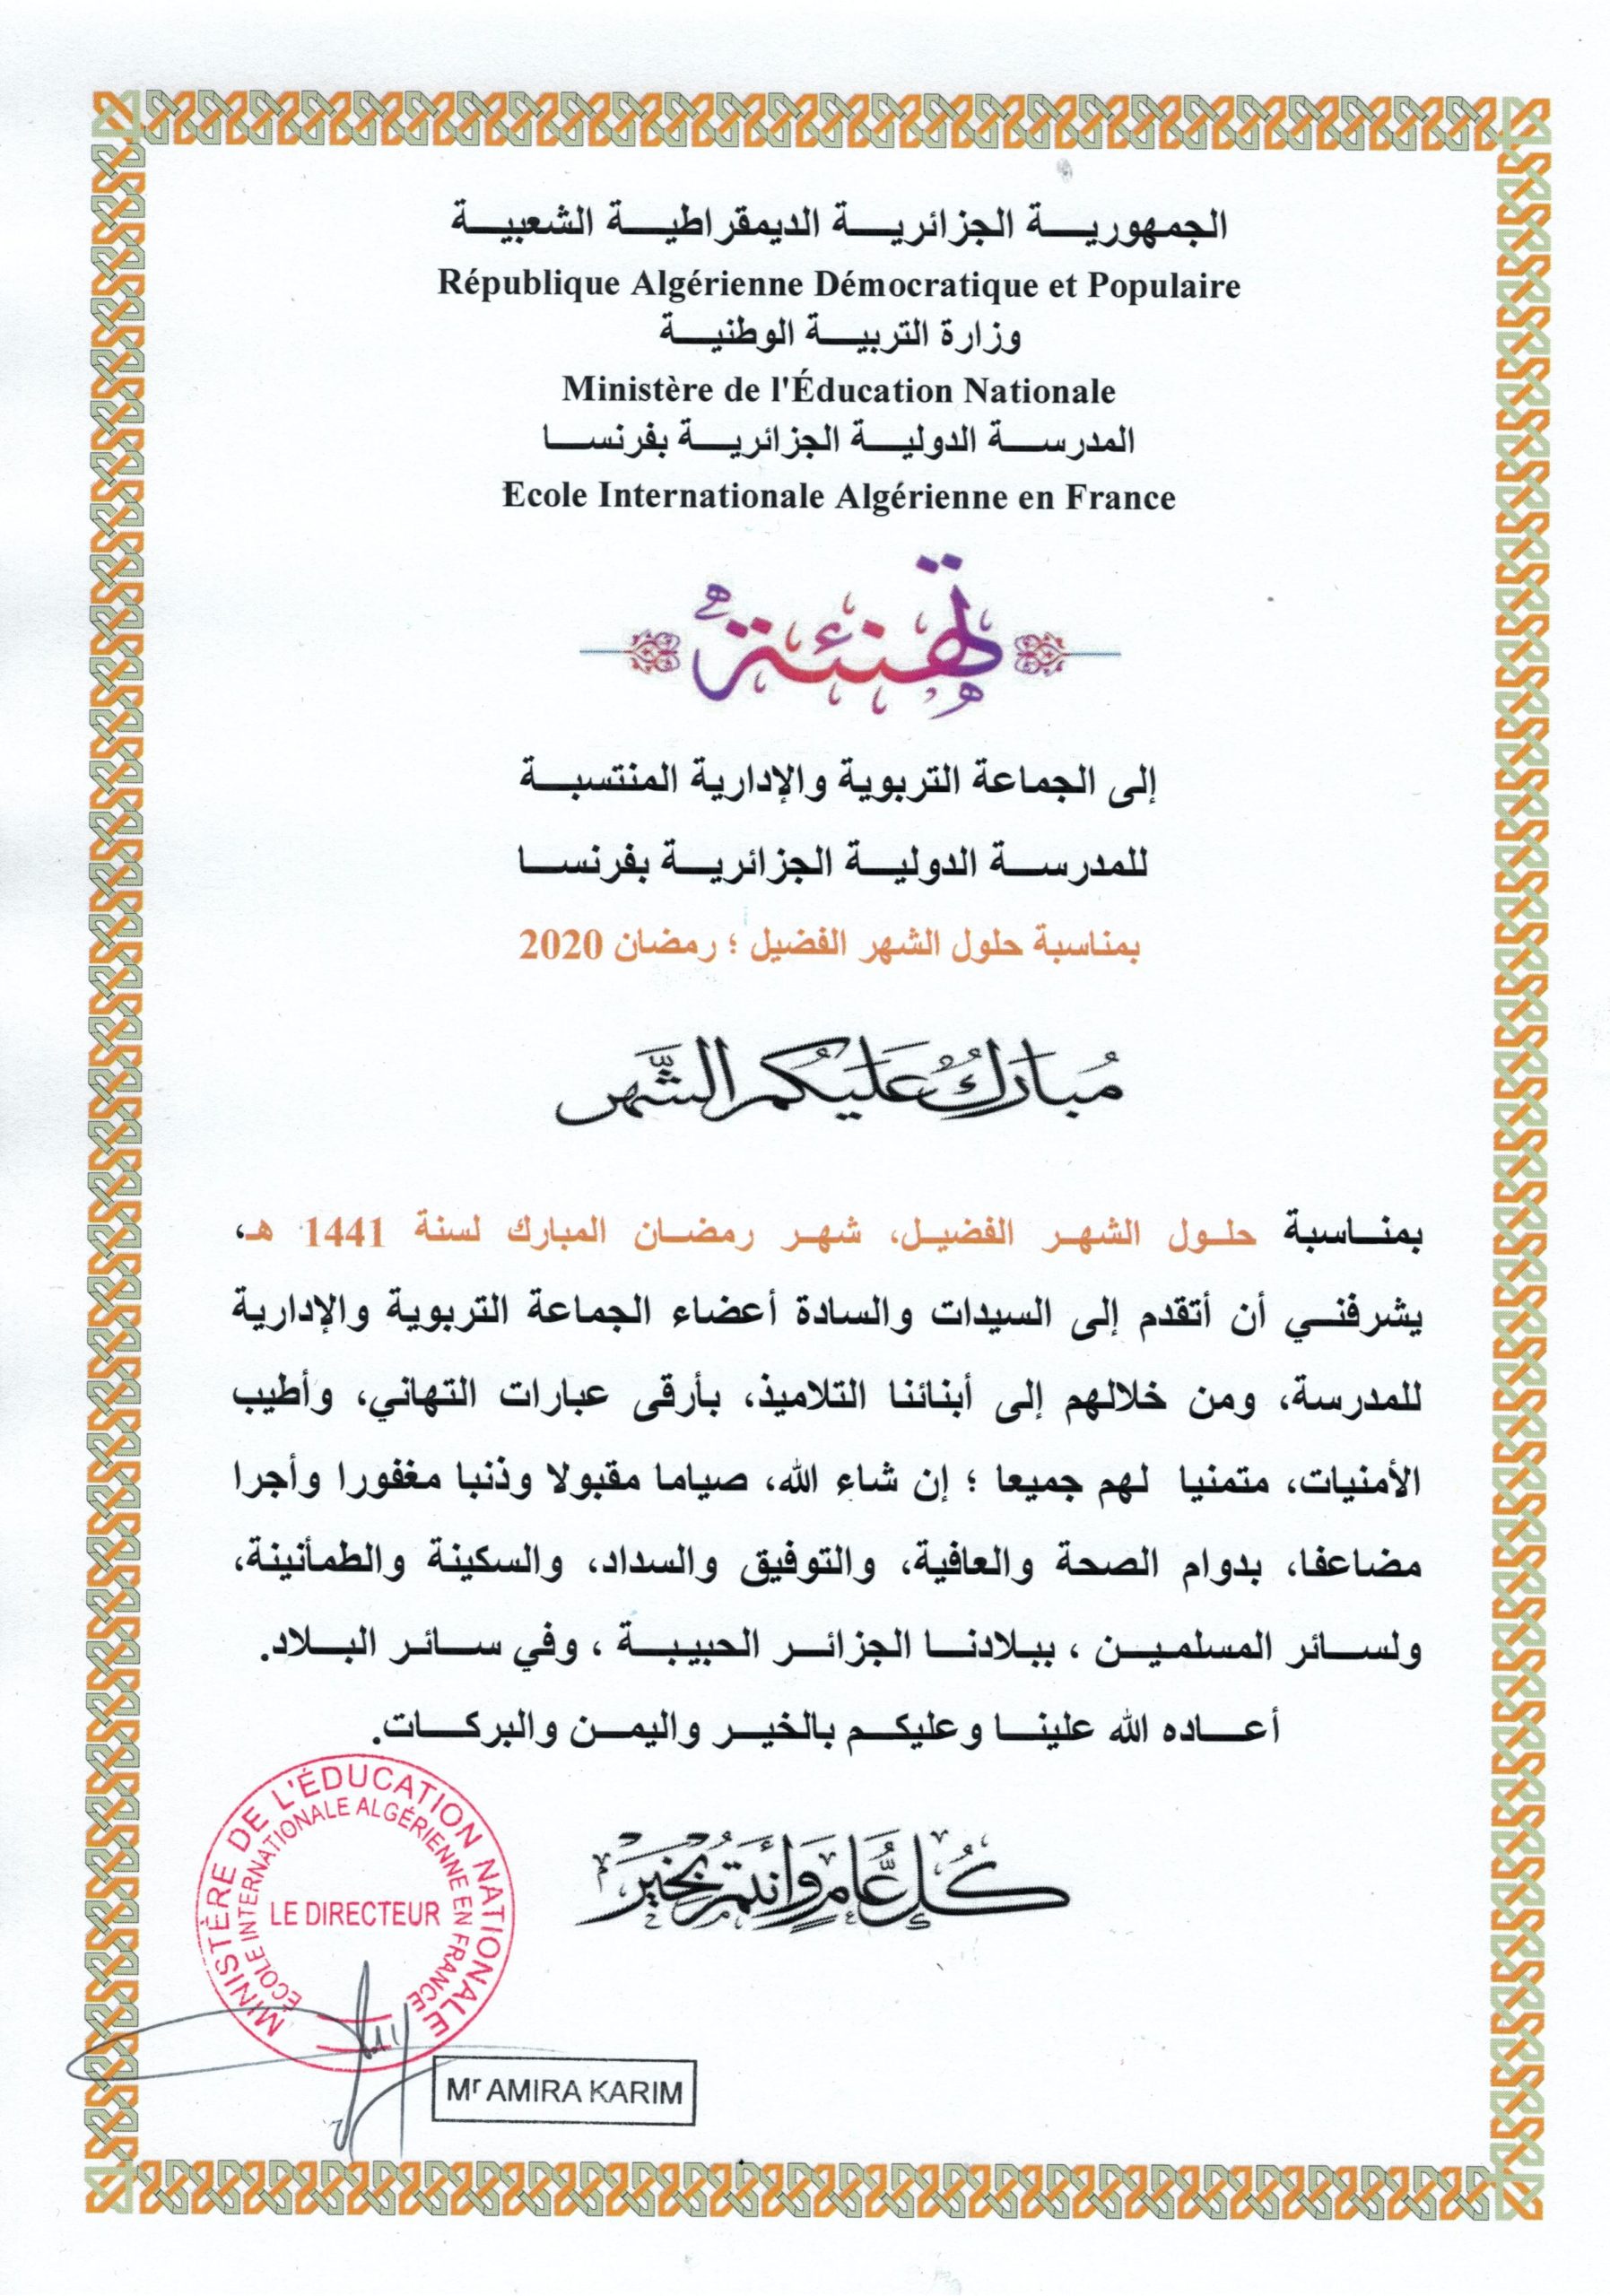 الجمهوريـــة الجزائريـــة الديمقراطيـــة الشعبيـــة
République Algérienne Démocratique et Populaire
وزارة التربيـــة الوطنيـــة
Ministère de l'Éducation Nationale
المدرســـة الدوليـــة الجزائريـــة بفرنســـا
Ecole Internationale Algérienne en France
تهنئة
إلى الجماعة التربوية والإدارية المنتسبـــة
للمدرســـة الدوليـــة الجزائريـــة بفرنســـا
بمناسبة حلول الشهر الفضيل ؛ رمضان 2020
مُبارَكٌ عَلَيْكُم الشَّهر
بمنـــاسبة حلــول الشهــر الفضيــل، شهــر رمضــان المبارك لسنة 1441 هـ،
يشرفنــي أن أتقدم إلى السيدات والسادة أعضاء الجماعة التربوية والإدارية
للمدرسة، ومن خلالهم إلى أبنائنا التلاميذ، بأرقى عبارات التهاني، وأطيب
الأمنيات، متمنيا لهم جميعا ؛ إن شاء الله، صياما مقبولا وذنبا مغفورا وأجرا
مضاعفا، بدوام الصحة والعافية، والتوفيق والسداد، والسكينة والطمأنينة،
ولســـائر المسلميـــن ، ببلادنـــا الجزائـــر الحبيبـــة ، وفي ســـائر البـــلاد.
أعـــاده الله علينـــا وعليكـــم بالخيـــر واليمـــن والبركـــات.
كُل عَام وَأنتم بِخَيْر
MINISTÈRE DE L'ÉDUCATION NATIONALE
ECOLE INTERNATIONALE ALGÉRIENNE EN FRANCE
LE DIRECTEUR
Mr AMIRA KARIM